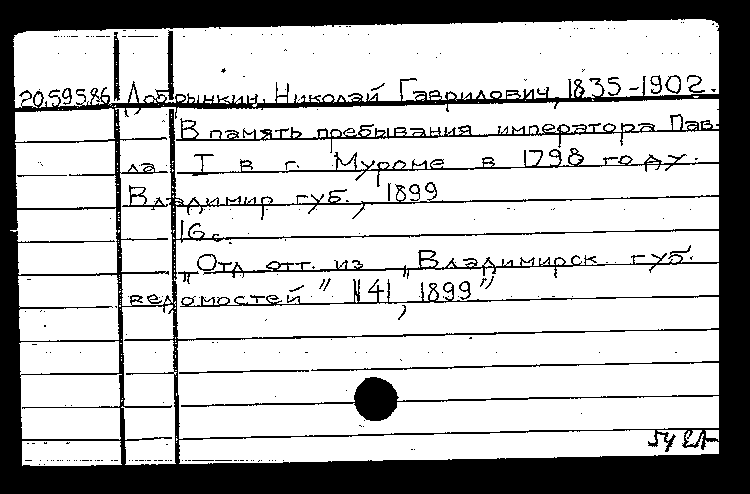 20.595.86 Добрынкин, Николай Гаврилович, 1835-1902.
В память пребывания императора Пав-
ла I в г. Муроме в 1798 году.
Владимир губ., 1899
16 с.
„Отд отт. из „Владимирск губ.
ведомостей" №41, 1899"